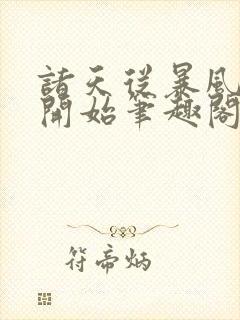 諸天從暴風
開始筆趣閣
符帝炳